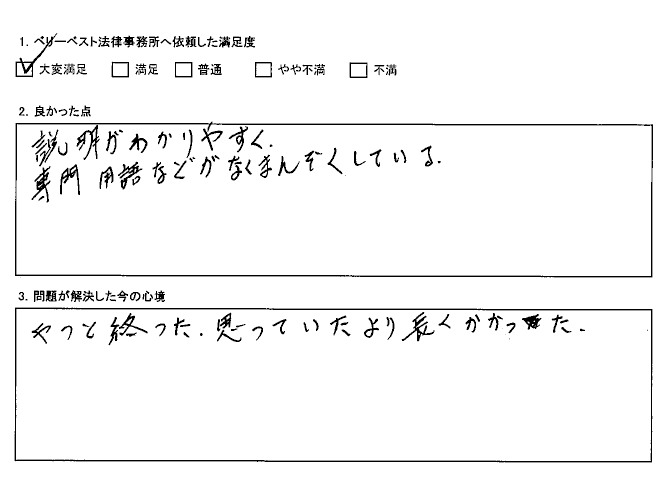 1. ベリーベスト法律事務所へ依頼した満足度
大変満足 満足 普通 やや不満 不満
2. 良かった点
説明がわかりやすく、
専門用語などがなくまんぞくしている。
3. 問題が解決した今の心境
やっと終った。思っていたより長くかかった。